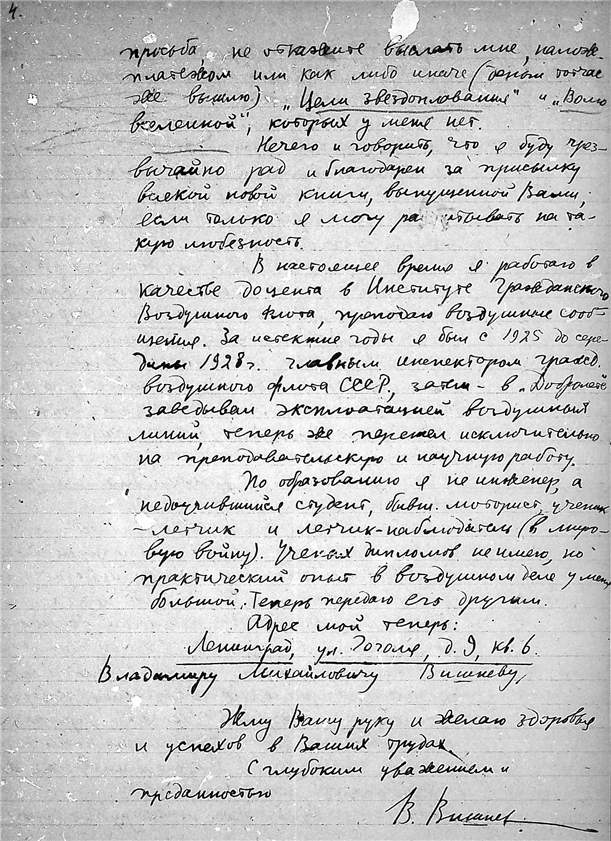 4.
просьба, не откажите выслать мне, налож.
платежом или как либо иначе (деньги тотчас
же вышлю) „Цели звездоплавания" и „Волю
вселенной", которых у меня нет.
Нечего и говорить, что я буду чрез-
вычайно рад и благодарен за присылку
всякой новой книги, выпущенной Вами,
если только я могу рассчитывать на та-
кую любезность.
В настоящее время я работаю в
качестве доцента в Институте Гражданского
Воздушного Флота, преподаю воздушные сооб-
щения. За истекшие годы я был с 1925 до сере-
дины 1928 г. главным инспектором гражд.
воздушного флота СССР, затем - в „Добролете"
заведывал эксплоатацией воздушных
линий, теперь же перешел исключительно
на преподавательскую и научную работу.
По образованию я не инженер, а
недоучившийся студент, бывш. моторист, ученик
-летчик и летчик-наблюдатель (в миро-
вую войну). Ученых дипломов не имею, но
практический опыт в воздушном деле у меня
большой. Теперь передаю его другим.
Адрес мой теперь:
Ленинград, ул. Гоголя, д. 9, кв. 6.
Владимиру Михайловичу Вишневу,
Жму Вашу руку и желаю здоровья
и успехов в Ваших трудах.
С глубоким уважением и
преданностью
В. Вишнев.